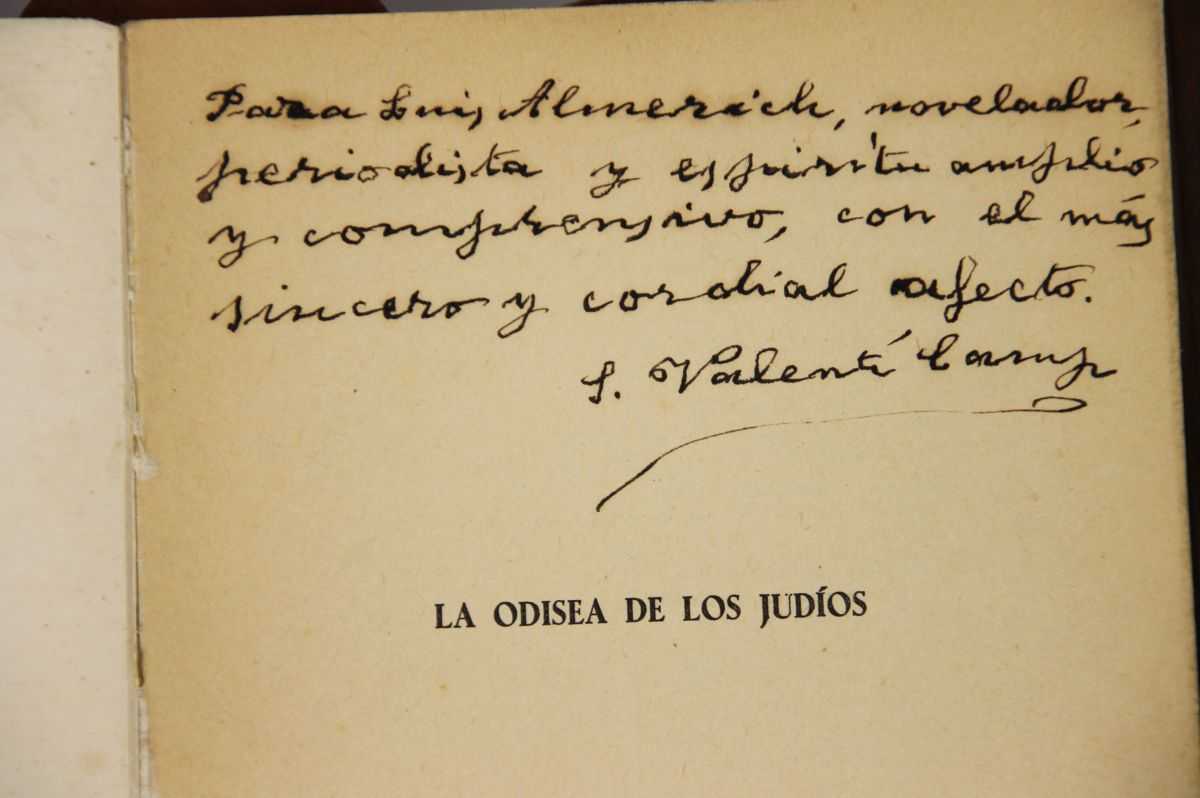 Para Luis Almerich, novelador,
periodista y espíritu amplio
y comprensivo, con el más
sincero y cordial afecto.
S. Valentí Camp
LA ODISEA DE LOS JUDÍOS